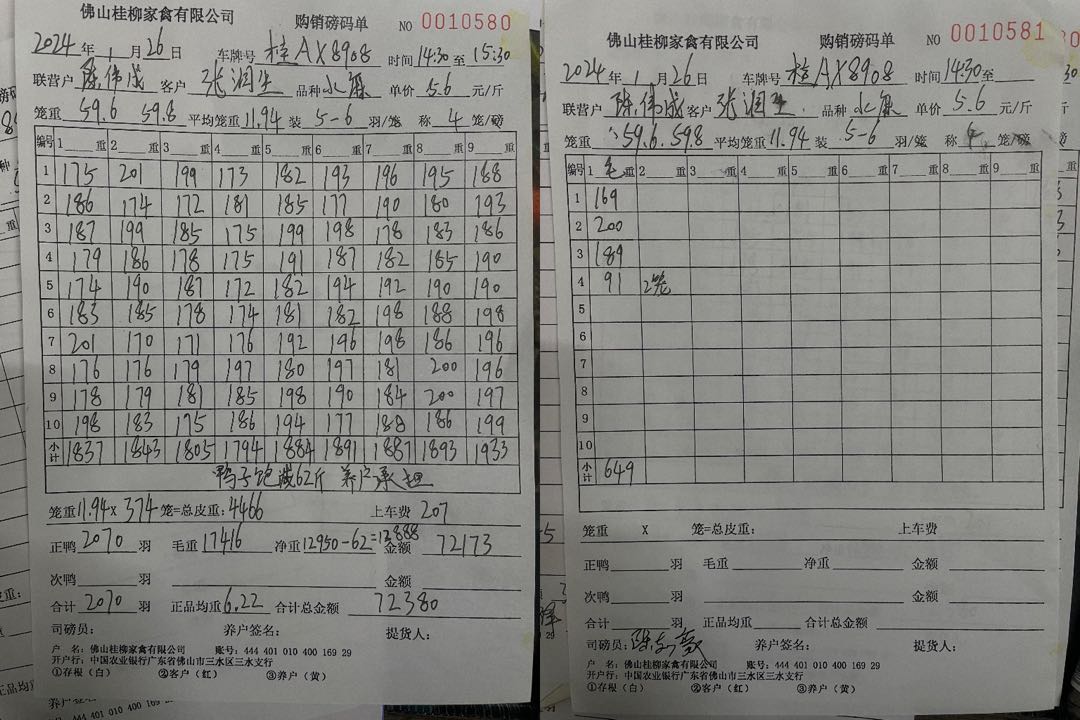 佛山桂柳家禽有限公司 购销磅码单 NO 0010580
2024年 1月26日 车牌号 桂AX8908 时间14:30至15:30
联营户 陈伟成 客户 张润生 品种 水鸭 单价 5.6 元/斤
笼重 59.6 59.8 平均笼重11.94 装 5-6 羽/笼 称 4 笼/磅
编号 1 重 2 重 3 重 4 重 5 重 6 重 7 重 8 重 9 重
1 175 201 199 173 182 193 196 195 188
2 186 174 172 181 185 177 190 180 193
3 187 199 185 175 199 198 178 183 186
4 179 186 178 175 191 187 182 185 190
5 174 190 187 172 182 194 192 190 190
6 183 185 178 174 181 182 198 188 198
7 201 170 171 176 192 196 198 186 196
8 176 176 179 197 180 197 181 200 196
9 178 179 181 185 198 190 184 200 197
10 198 183 175 186 194 177 188 186 199
小计 1837 1843 1805 1794 1884 1891 1887 1893 1933
鸭子饱减62斤 养户承担
笼重11.94 x 374 笼=总皮重: 4466 上车费 207
正鸭 2070 羽 毛重 17416 净重 12950-62=12888 金额 72173
次鸭 羽 金额
合计 2070 羽 正品均重 6.22 合计总金额 72380
司磅员: 养户签名: 提货人:
户 名: 佛山桂柳家禽有限公司 账号: 444 401 010 400 169 29
开户行: 中国农业银行广东省佛山市三水区三水支行
①存根(白) ②客户(红) ③养户(黄)
佛山桂柳家禽有限公司 购销磅码单 NO 0010581
2024年 1月26日 车牌号 桂AX8908 时间14:30至
联营户 陈伟成 客户 张润生 品种 水鸭 单价 5.6 元/斤
笼重 59.6. 59.8 平均笼重11.94 装 5-6 羽/笼 称 4 笼/磅
编号 1 毛 重 2 重 3 重 4 重 5 重 6 重 7 重 8 重 9 重
1 169
2 200
3 189
4 91 2笼
5
6
7
8
9
10
小计 649
笼重 X 笼=总皮重: 上车费
正鸭 羽 毛重 净重 金额
次鸭 羽 金额
合计 羽 正品均重 合计总金额
司磅员: 养户签名: 提货人:
户 名: 佛山桂柳家禽有限公司 账号: 444 401 010 400 169 29
开户行: 中国农业银行广东省佛山市三水区三水支行
①存根(白) ②客户(红) ③养户(黄)